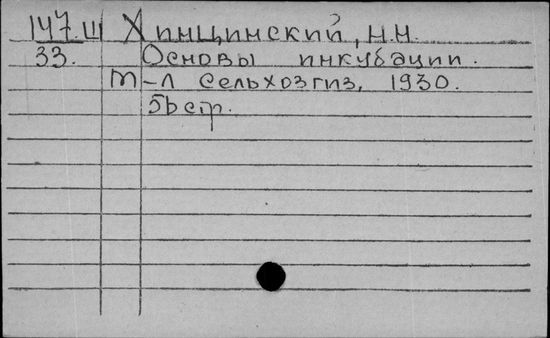 147.Ш Хинцинский, Н.Н.
33. Основы инкубации.
М-Л Сельхозгиз, 1930.
стр.